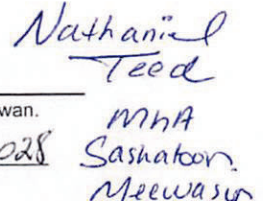 Nathaniel
Teed
wan.
MLA
028 Saskatoon
Meewasin